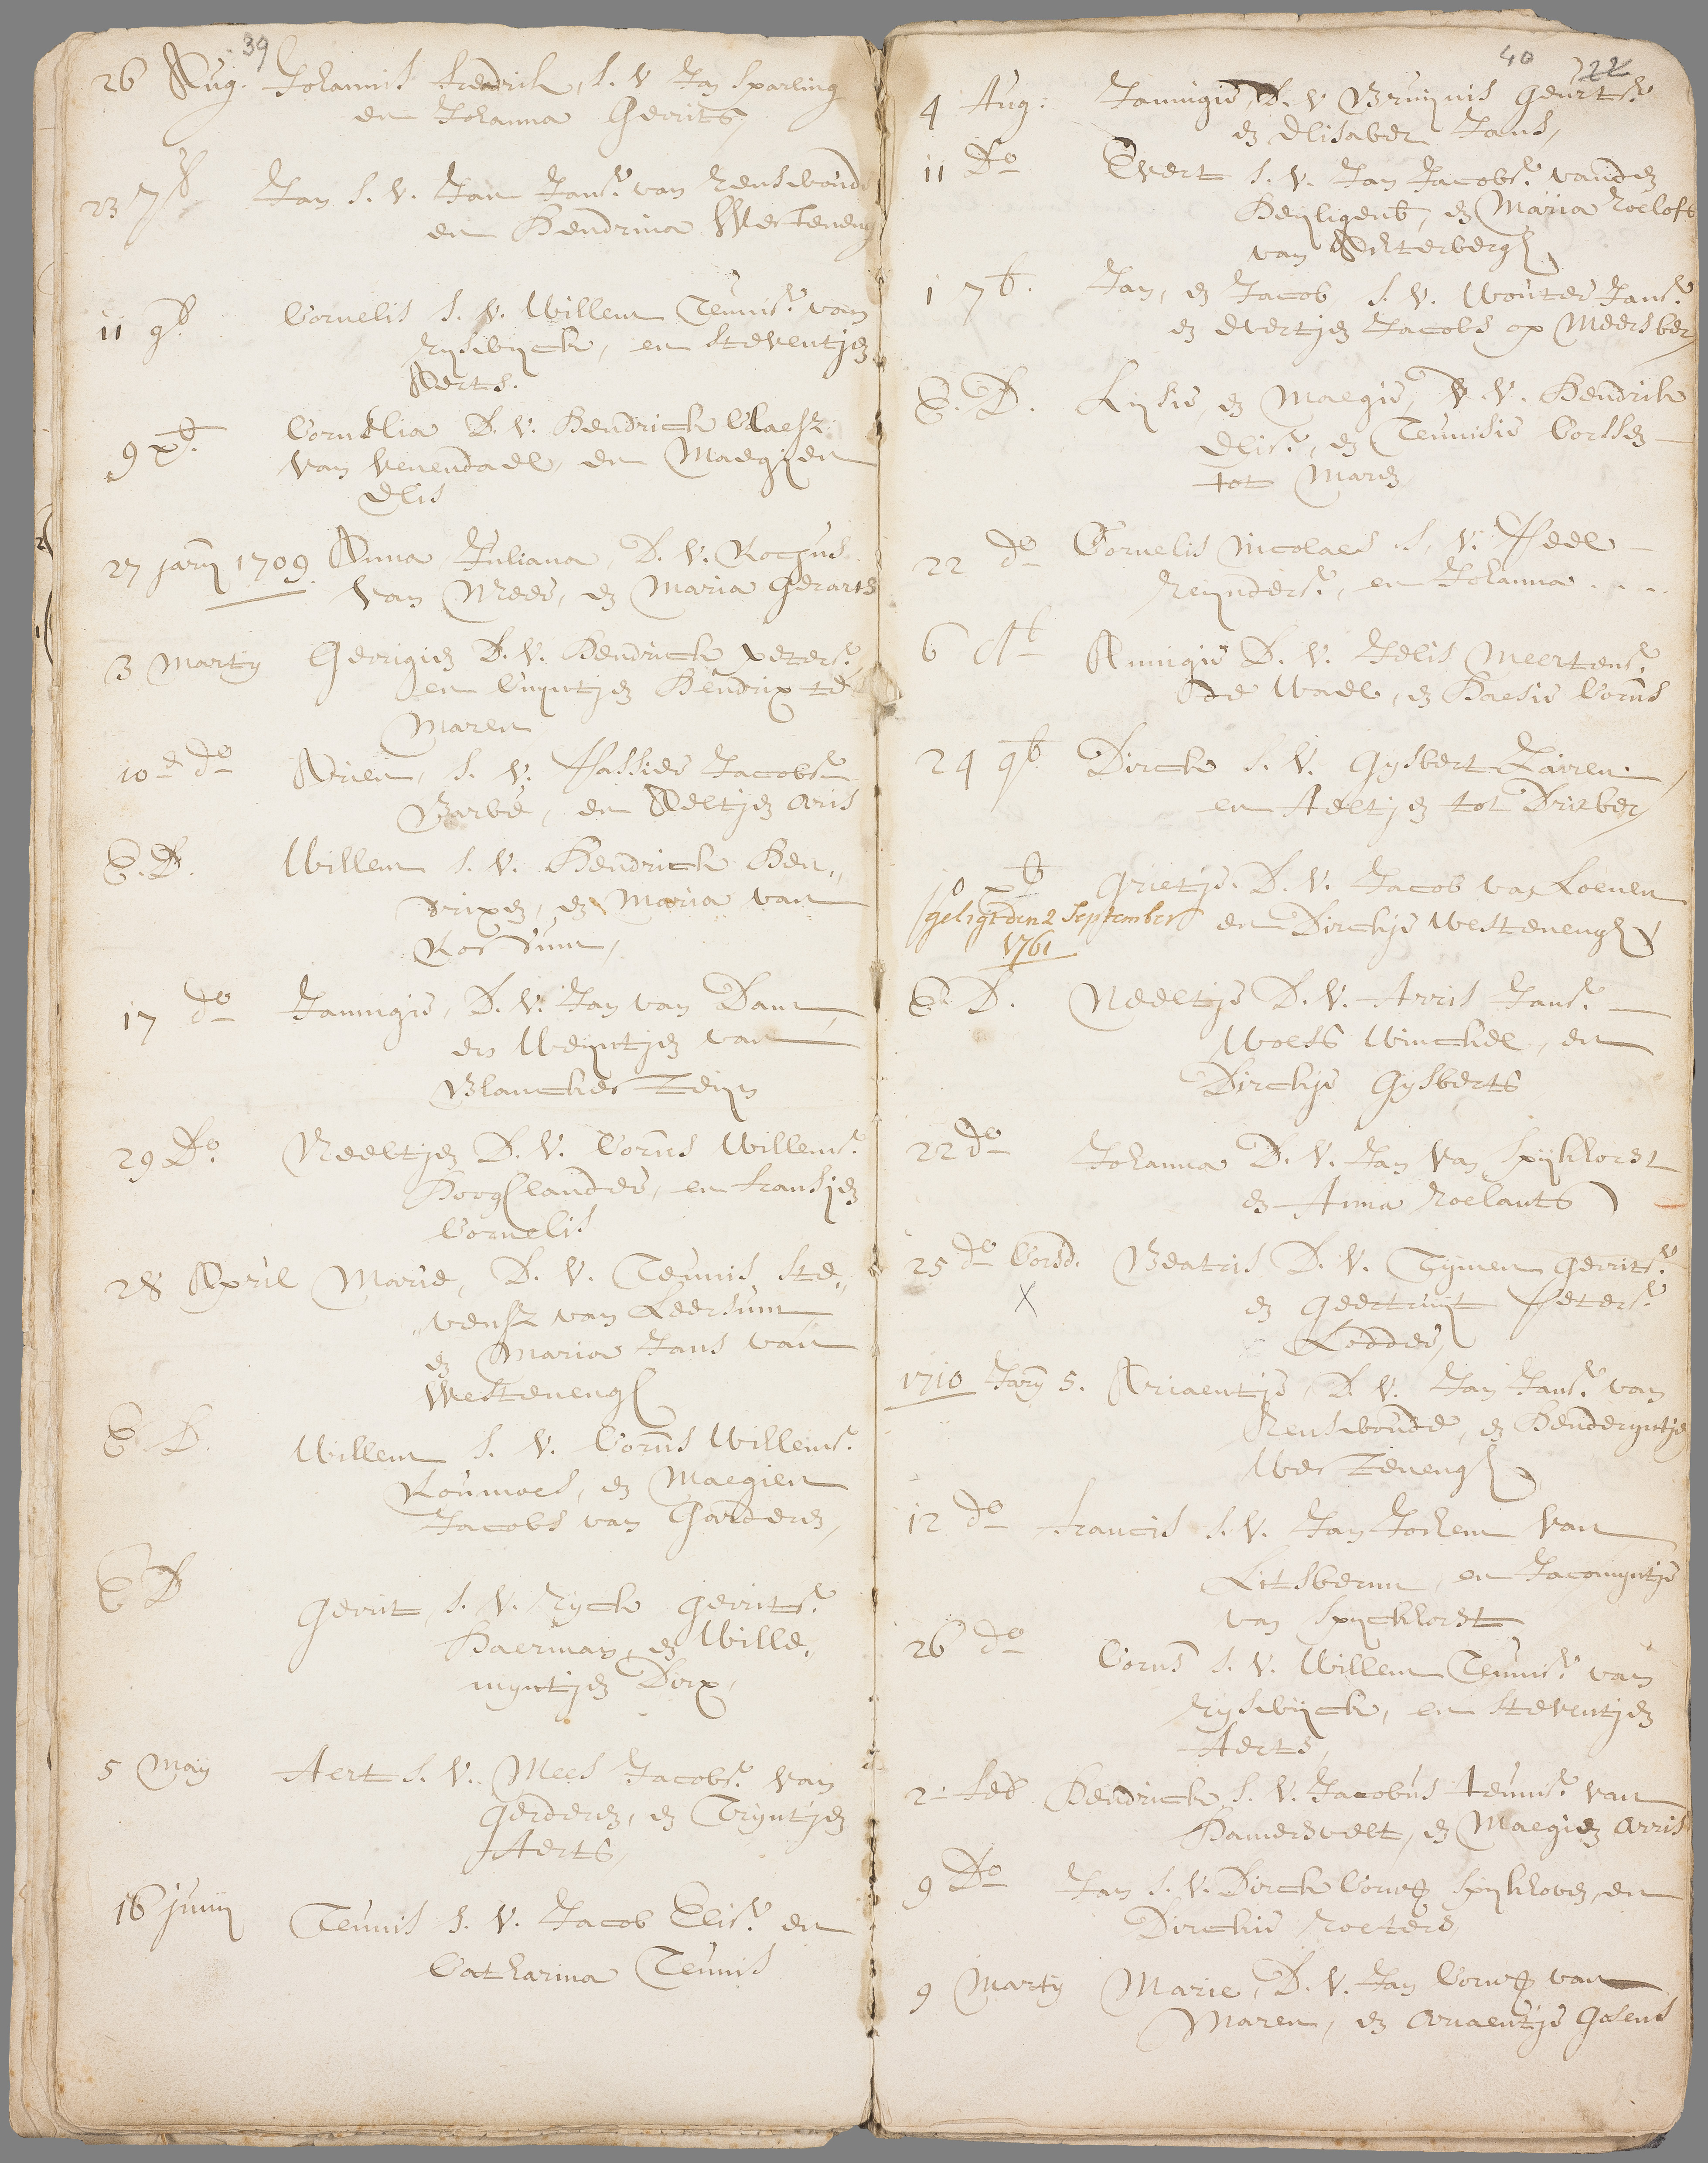 39
26 Aug. Johannis fredrik, s. v Jan Sparling
en Johanna Gerrits
23 7b Jan s. v. Jan Jans. van Renswoude
en Hendrina Westeneng
11 9b. Cornelis s. v. Willem Teunis. van
Ryswyck, en Steventjen
Aerts.
9 xb. Cornelia D. v. Hendrick Claesz.
van Venendael, en Maegjen
Elis
27 jary 1709. Anna Juliana, D. v. Rochus
van Mees, en Maria Gerarts
3 Marty Gerrigien D. v. Hendrick peters.
en Cuyntjen Hendrix te
Maren
10 do Arien, s. v. Jacobs.
en Neeltjen aris
E. D. Willem s. v. Hendrick Hen„
drixen, en Maria van
17 do Jannigie, D. v. Jan van Dam
en Weyntjen van
Blanckesteijn
29 Do. Neeltjen D. v. Corns Willems.
Hooghlander, en fransjen
Cornelis
28 April Marie, D. v. Teunis Ste„
vensz van Leersum
en Maria Jans van
Westenengh
E D. Willem s. v. Corns Willems.
Koumoes, en Maegien
Jacobs van Garderen,
E D Gerrit, s. v. Ryck Gerrits.
Haerman, en Wille„
myntjen Dirx,
5 May Aert s. v. Mees Jacobs. van
Gerderen, en Tryntjen
Aerts,
16 junij Teunis s. v. Jacob Elis. en
Catharina Teunis
40 22
4 Aug: Jannigie, D. v Bruijnis Geurts.
en Elisabet Jans,
11 Do Evert s. v. Jan Jacobs. vanden
Heyligenb, en Maria Roelofs
van Achterbergh
1 7b. Jan, en Jacob s. v. Wouter Jans.
en Evertjen Jacobs op Meersber
E. D. Lijsie en Maegie, v. Hendrik
Elis., en Teunisie Corssen
tot Maren
22 do Cornelis Nicolaes s. v. Peel
Reynders., en Johanna . . . .
6 Annigie D. v. Jelis Meertens.
de Wael, en Haesie Corns
24 9b. Dirck s. v. Gysbert
en Aeltjen tot Drieber
10 xb Grietje. D. v. Jacob van Loenen
geligt den 2 September en Dirckje Westenengh
1761
E. D. Neeltje D. v. Arris Jans.
Woets Winckel, en
Dirckje Gysberts
22 do Johanna D. v. Jan van Spijkhorst
en Anna Roelants
25 do Corsd. Beatris D. v. Tymen Gerrits.
X en Geertruijt Peters.
Lodder,
1710 Jary 5. Ariaentje, D. v. Jan Jans. van
Renswoude, en Henderyntje
Westenengh
12 do francis s. v. Jan Jochem van
en Jacomyntje
van Spyckhorst
26 do Corns s. v. Willem Teunis. van
Ryswijck, en Steventjen
Aerts,
2 feb Hendrick s. v. Jacobus teunis. van
Hamersvelt, en Maegien arris
9 Do Jan s. v. Dirck en
Dirckie
9 Marty Marie, D. v. Jan van
Maren, en Ariaentje Gosens